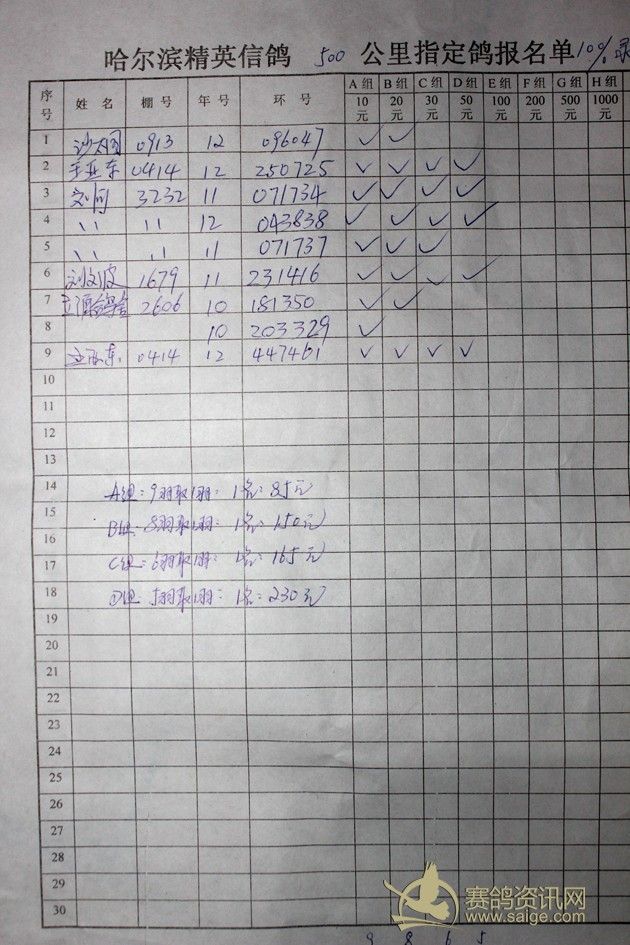 哈尔滨精英信鸽 500 公里指定鸽报名单 10% 录
序号 姓名 棚号 年号 环号 A组 10元 B组 20元 C组 30元 D组 50元 E组 100元 F组 200元 G组 500元 H组 1000
1 0913 12 096047 ✓ ✓
2 王亚东 0414 12 250725 ✓ ✓ ✓ ✓
3 3232 11 071734 ✓ ✓ ✓ ✓
4 〃 〃 12 043838 ✓ ✓ ✓ ✓
5 〃 〃 11 071737 ✓ ✓ ✓
6 1679 11 231416 ✓ ✓ ✓ ✓
7 2606 10 181350 ✓ ✓
8 10 203329 ✓
9 0414 12 447461 ✓ ✓ ✓ ✓
10
11
12
13
14 A组：9羽取1羽：1名：85元
15
B组：8羽取1羽：1名：150元
16
17 C组：6羽取1羽：1名：165元
18 D组 5羽取1羽：1名：230元
19
20
21
22
23
24
25
26
27
28
29
30
赛鸽资讯网
www.saige.com
9 8 6 5